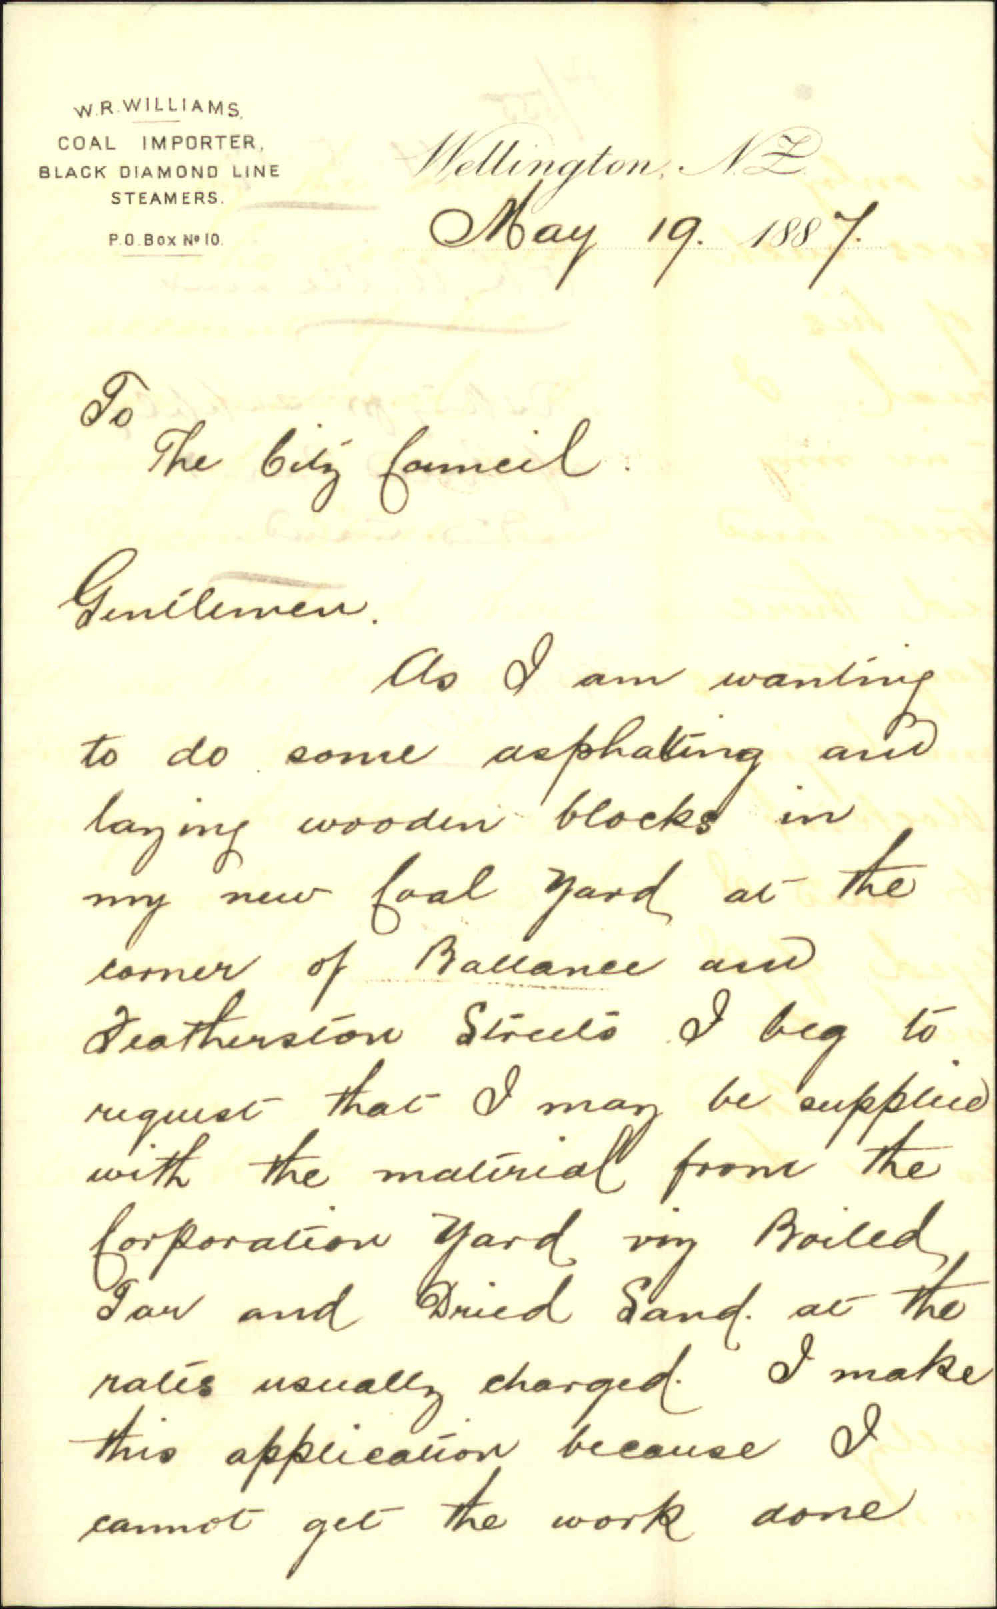 W.R. WILLIAMS,
COAL IMPORTER,
BLACK DIAMOND LINE
STEAMERS.
P.O. Box No 10.
Wellington, N.Z.
May 19. 1887.
To
The City Council.
Gentlemen.
As I am wanting
to do some asphalting and
laying wooden blocks in
my new Coal Yard at the
corner of Ballance and
Featherston Streets I beg to
request that I may be supplied
with the material from the
Corporation Yard viz Boiled
Tar and Dried Sand. at the
rates usually charged. I make
this application because I
cannot get the work done